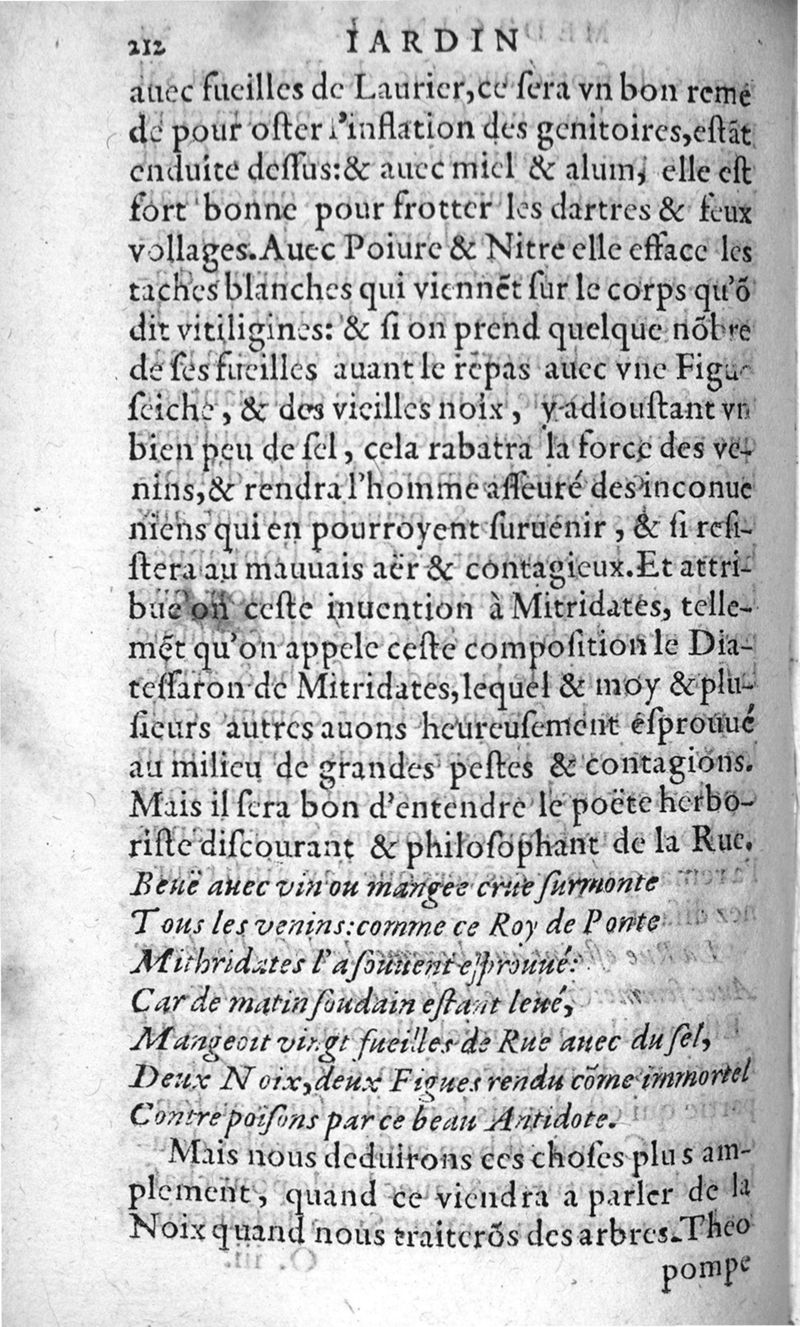 212 IARDIN
auec fueilles de Laurier,ce ſera vn bon reme
de pour oſter l'inflation des genitoires,eſtãt
enduite deſſus:& auec miel & alum, elle eſt
fort bonne pour frotter les dartres & feux
vollages.Auec Poiure & Nitre elle efface les
taches blanches qui viennẽt ſur le corps qu'õ
dit vitiligines: & ſi on prend quelque nõbre
de ſes fueilles auant le repas auec vne Figue
ſeiche, & des vieilles noix, y adiouſtant vn
bien peu de ſel, cela rabatra la force des ve-
nins,& rendra l'homme aſſeuré des inconue
niens qui en pourroyent ſuruenir, & ſi reſi-
ſtera au mauuais aër & contagieux.Et attri-
buë on ceſte inuention à Mitridates, telle-
mẽt qu'on appele ceſte compoſition le Dia-
teſſaron de Mitridates,lequel & moy & plu-
ſieurs autres auons heureuſement eſprouué
au milieu de grandes peſtes & contagions.
Mais il ſera bon d'entendre le poëte herbo-
riſte diſcourant & philoſophant de la Rue.
Beuë auec vin ou mangee crue ſurmonte
Tous les venins:comme ce Roy de Ponte
Mithridates l'a ſouuent eſprouué:
Car de matin ſoudain eſtant leué,
Mangeoit vingt fueilles de Rue auec du ſel,
Deux Noix,deux Figues rendu cõme immortel
Contre poiſons par ce beau Antidote.
Mais nous deduirons ces choſes plus am-
plement, quand ce viendra a parler de la
Noix quand nous traiterõs des arbres.Theo
pompe